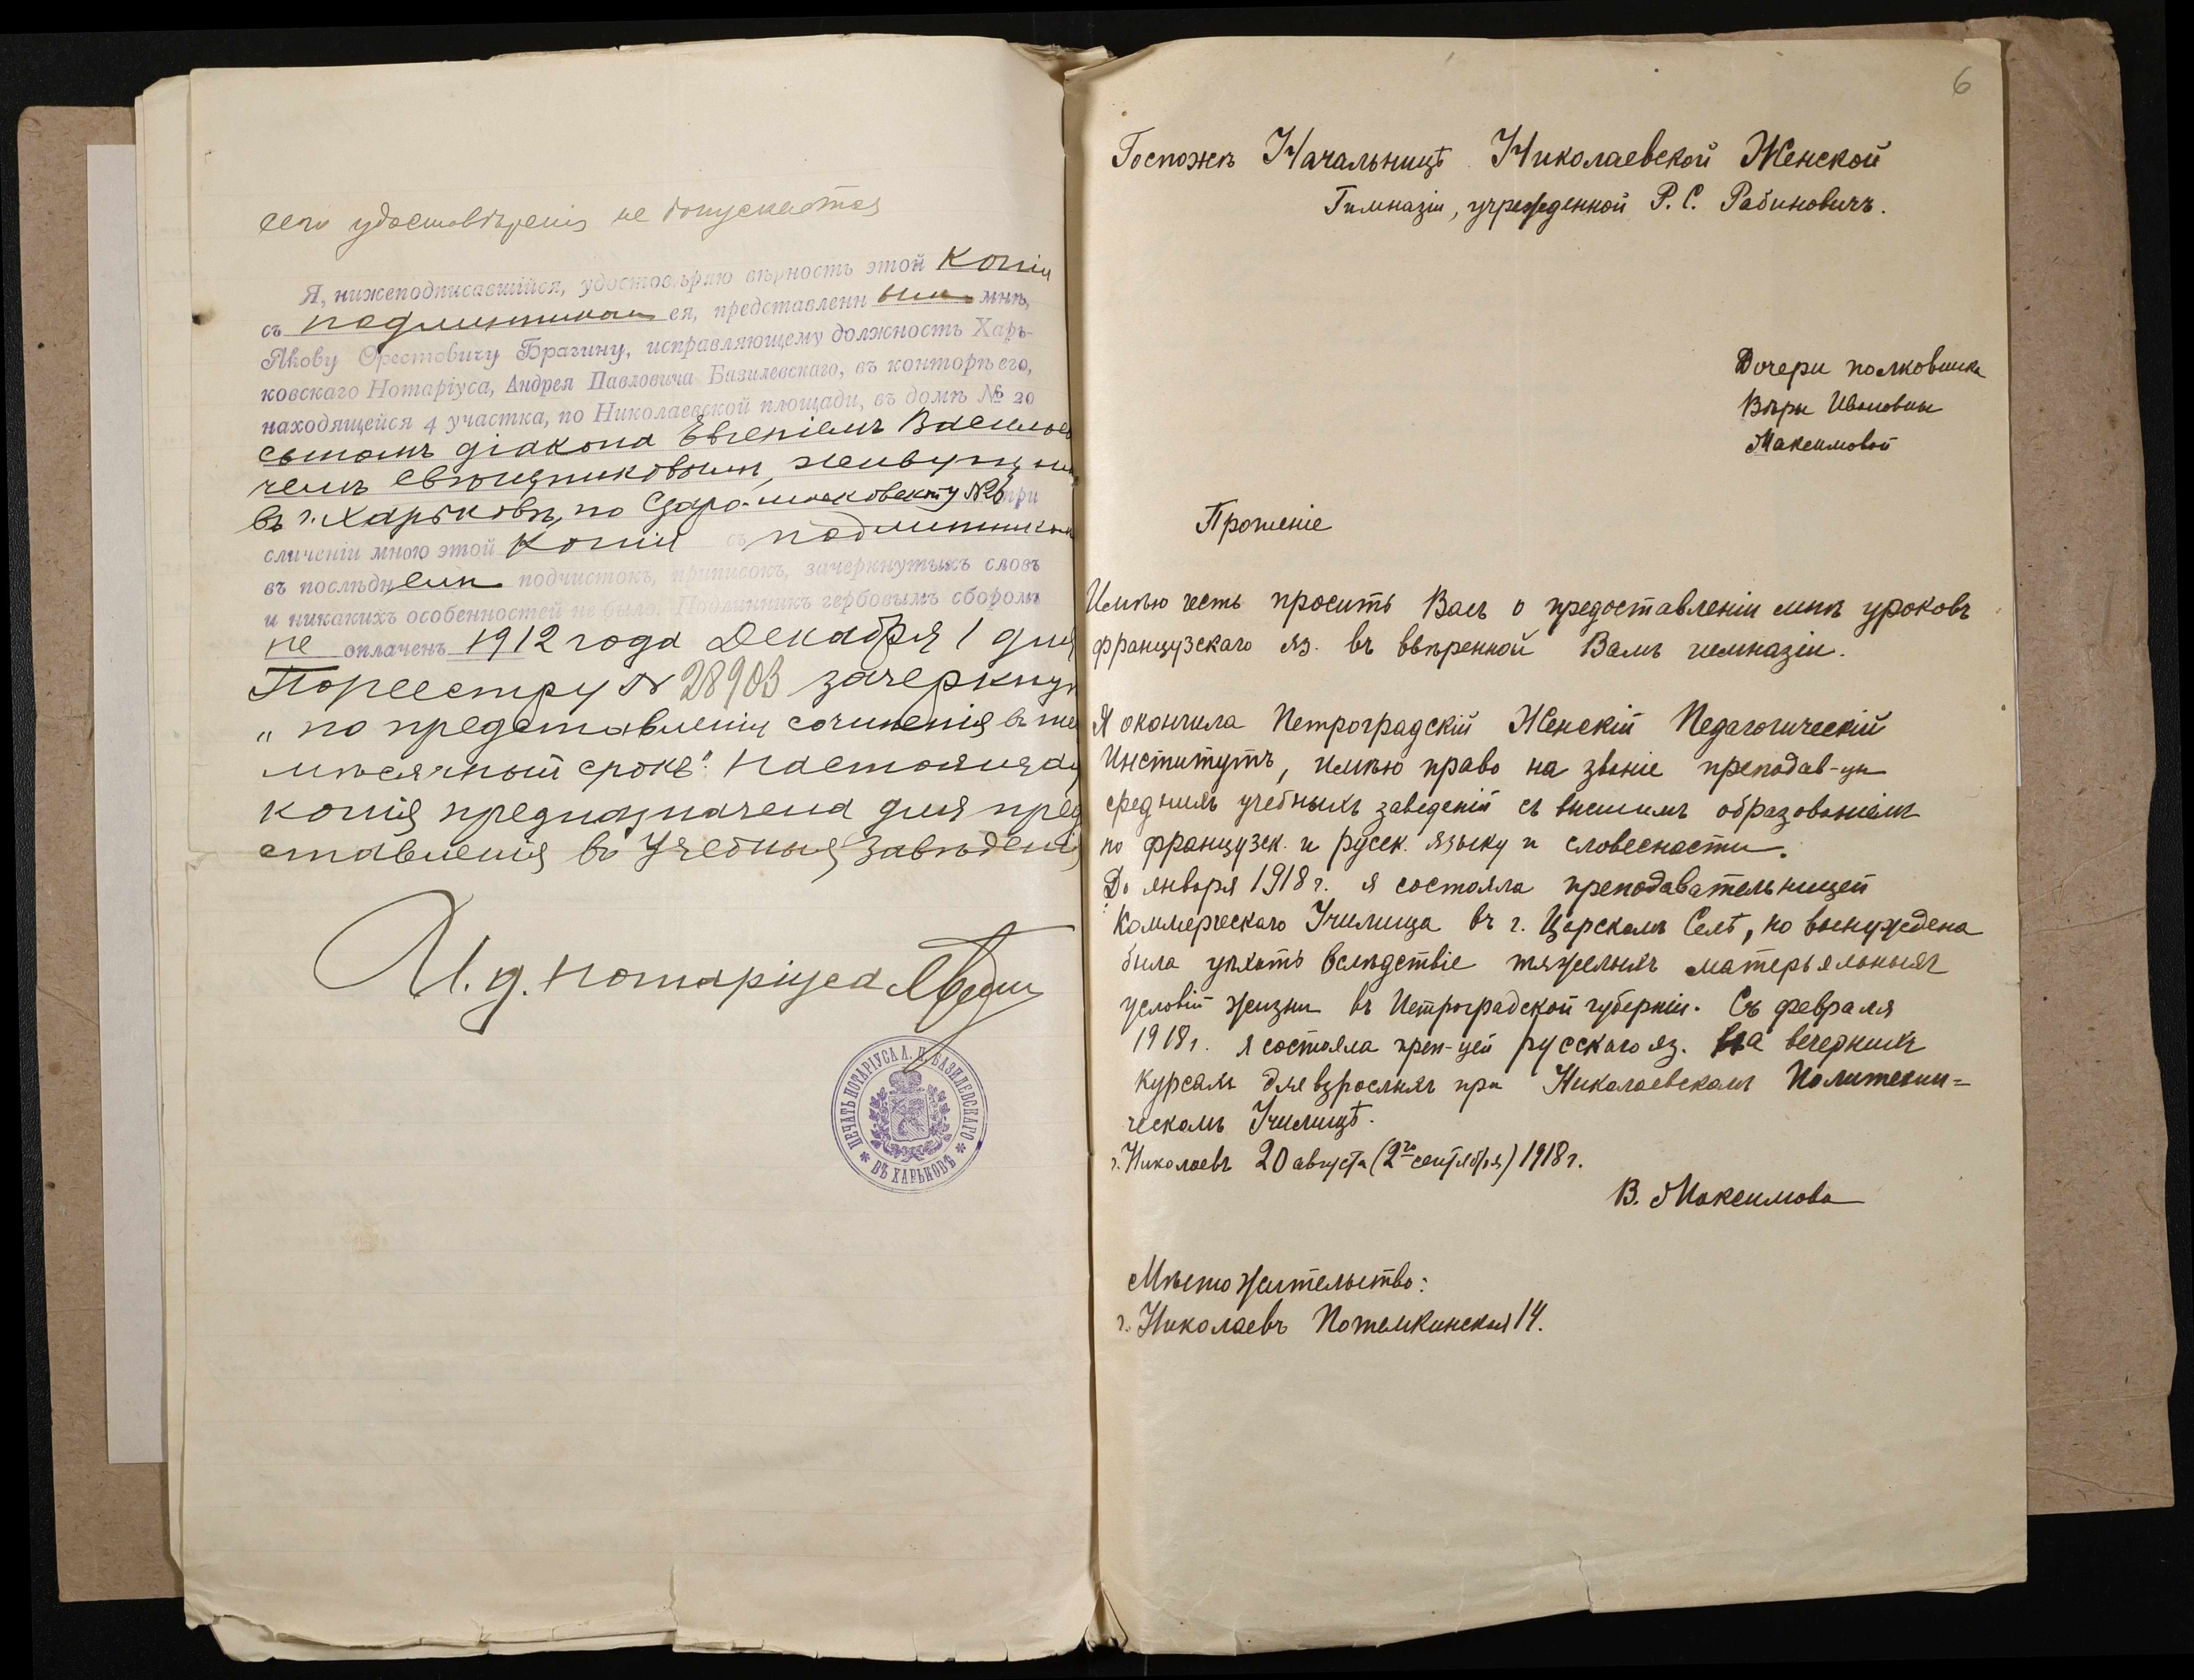 сего удостовѣренія не допускается
Я, нижеподписавшійся, удостовѣряю вѣрность этой копіи
съ подлинникомъ ея, представленнымъ мнѣ,
Якову Орестовичу Брагину, исправляющему должность Харь-
ковскаго Нотаріуса, Андрея Павловича Базилевскаго, въ конторѣ его,
находящейся 4 участка, по Николаевской площади, въ домѣ № 20
сыномъ діакона Евгеніемъ Василье
чемъ Свѣщниковымъ, живущим
въ г. Харьковѣ, по Старо-московской № 26 при
сличеніи мною этой копіи съ подлинником
въ послѣднемъ подчистокъ, приписокъ, зачеркнутыхъ словъ
и никакихъ особенностей не было. Подлинникъ гербовымъ сборомъ
не оплаченъ 1912 года Декабря 1 дня
По реестру № 28903 зачеркнут
„по представленіи сочиненія въ ше
мѣсячный срокъ". Настоящая
копія предназначена для пред
ставленія въ Учебныя Заведенія
И. д. нотаріуса
ПЕЧАТЬ НОТАРІУСА А. П. БАЗИЛЕВСКАГО
ВЪ ХАРЬКОВѢ
6
Госпожѣ Начальницѣ Николаевской Женской
Гимназіи, учрежденной Р. С. Рабиновичъ.
Дочери полковника
Вѣры Ивановны
Максимовой
Прошеніе
Имѣю честь просить Васъ о предоставленіи мнѣ уроковъ
французскаго яз. въ ввѣренной Вамъ гимназіи.
Я окончила Петроградскій Женскій Педагогическій
Институтъ, имѣю право на званіе преподав-цы
среднихъ учебныхъ заведеній съ высшимъ образованіемъ
по французск. и русск. языку и словесности.
До января 1918 г. я состояла преподавательницей
Коммерческаго Училища въ г. Царскомъ Селѣ, но вынуждена
была уѣхать вслѣдствіе тяжелыхъ матерьяльныхъ
условій жизни въ Петроградской губерніи. Съ февраля
1918 г. я состояла преп-цей русскаго яз. на вечернихъ
курсахъ для взрослыхъ при Николаевскомъ Политехни=
ческомъ Училищѣ.
г. Николаевъ 20 августа (2го сентября) 1918 г.
В. Максимова
Мѣсто жительство:
г. Николаевъ Потемкинская 14.